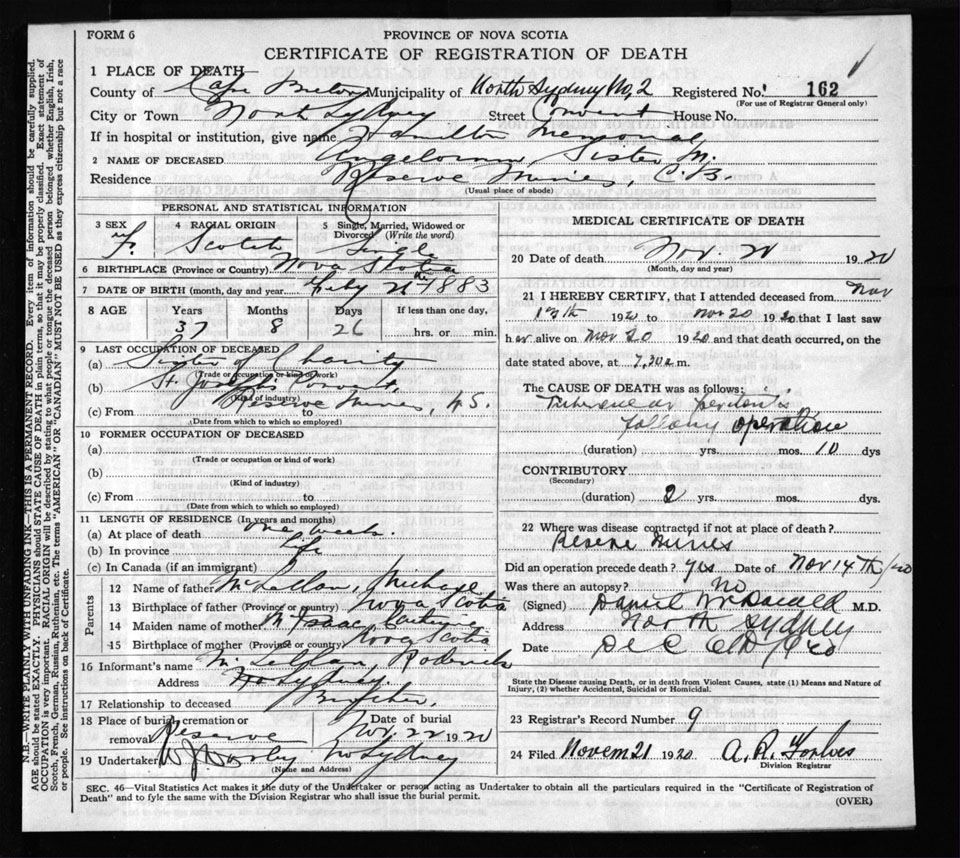 FORM 6
PROVINCE OF NOVA SCOTIA
CERTIFICATE OF REGISTRATION OF DEATH
1 PLACE OF DEATH—
County of Cape Breton Municipality of North Sydney No, 2 Registered No. 162
(For use of Registrar General only)
City or Town North Sydney Street Convent House No.
If in hospital or institution, give name Hamilton Memorial
2 NAME OF DECEASED Sister M.
Residence Reserve Mines, C.B.
(Usual place of abode)
PERSONAL AND STATISTICAL INFORMATION
3 SEX F. 4 RACIAL ORIGIN Scotch 5 Single, Married, Widowed or Divorced (Write the word) Single
6 BIRTHPLACE (Province or Country) Nova Scotia
7 DATE OF BIRTH (month, day and year) 1883
8 AGE Years 37 Months 8 Days 26 If less than one day, hrs. or min.
9 LAST OCCUPATION OF DECEASED
(a) Sister of Charity
(Trade or occupation or kind of work)
(b) St. Joseph's Convent,
(Kind of industry)
Reserve Mines,
(c) From to
(Date from which to which so employed)
10 FORMER OCCUPATION OF DECEASED
(a)
(Trade or occupation or kind of work)
(b)
(Kind of industry)
(c) From to
(Date from which to which so employed)
11 LENGTH OF RESIDENCE (In years and months)
(a) At place of death one week.
(b) In province life
(c) In Canada (if an immigrant)
Parents
12 Name of father Michael
13 Birthplace of father (Province or country) Nova Scotia
14 Maiden name of mother McIsaac,
15 Birthplace of mother (Province or country) Nova Scotia
16 Informant's name Roderick
Address No Sydney.
17 Relationship to deceased Brother.
18 Place of burial, cremation or removal Reserve Date of burial Nov, 22 1920
19 Undertaker No Sydney
(Name and Address)
MEDICAL CERTIFICATE OF DEATH
20 Date of death Nov. 20 1920
(Month, day and year)
21 I HEREBY CERTIFY, that I attended deceased from Nov
13th 1920 to Nov 20 1920 that I last saw
her alive on Nov 20 1920 and that death occurred, on the
date stated above, at 7,30 a m.
The CAUSE OF DEATH was as follows:
operation
(duration) yrs. mos. 10 dys
CONTRIBUTORY
(Secondary)
(duration) 2 yrs. mos. dys.
22 Where was disease contracted if not at place of death?
Reserve Mines
Did an operation precede death? yes Date of Nov 14th/20
Was there an autopsy? No
(Signed) Daniel McDonald M.D.
Address North Sydney
Date
State the Disease causing Death, or in death from Violent Causes, state (1) Means and Nature of
Injury, (2) whether Accidental, Suicidal or Homicidal.
23 Registrar's Record Number 9
24 Filed Novem 21 1920 A. R. Forbes
Division Registrar
SEC. 46—Vital Statistics Act makes it the duty of the Undertaker or person acting as Undertaker to obtain all the particulars required in the "Certificate of Registration of
Death" and to fyle the same with the Division Registrar who shall issue the burial permit.
(OVER)
N.B.—WRITE PLAINLY WITH UNFADING INK—THIS IS A PERMANENT RECORD. Every item of information should be carefully supplied.
AGE should be stated EXACTLY. PHYSICIANS should STATE CAUSE OF DEATH in plain terms, so that it may be properly classified. Exact statement of
OCCUPATION is very important. RACIAL ORIGIN will be described by stating to what people or tongue the deceased person belonged whether English, Irish,
Scotch, French, German, Russian, Ruthenian, etc. The terms "AMERICAN" OR "CANADIAN" MUST NOT BE USED as they express citizenship but not a race
or people. See instructions on back of Certificate.